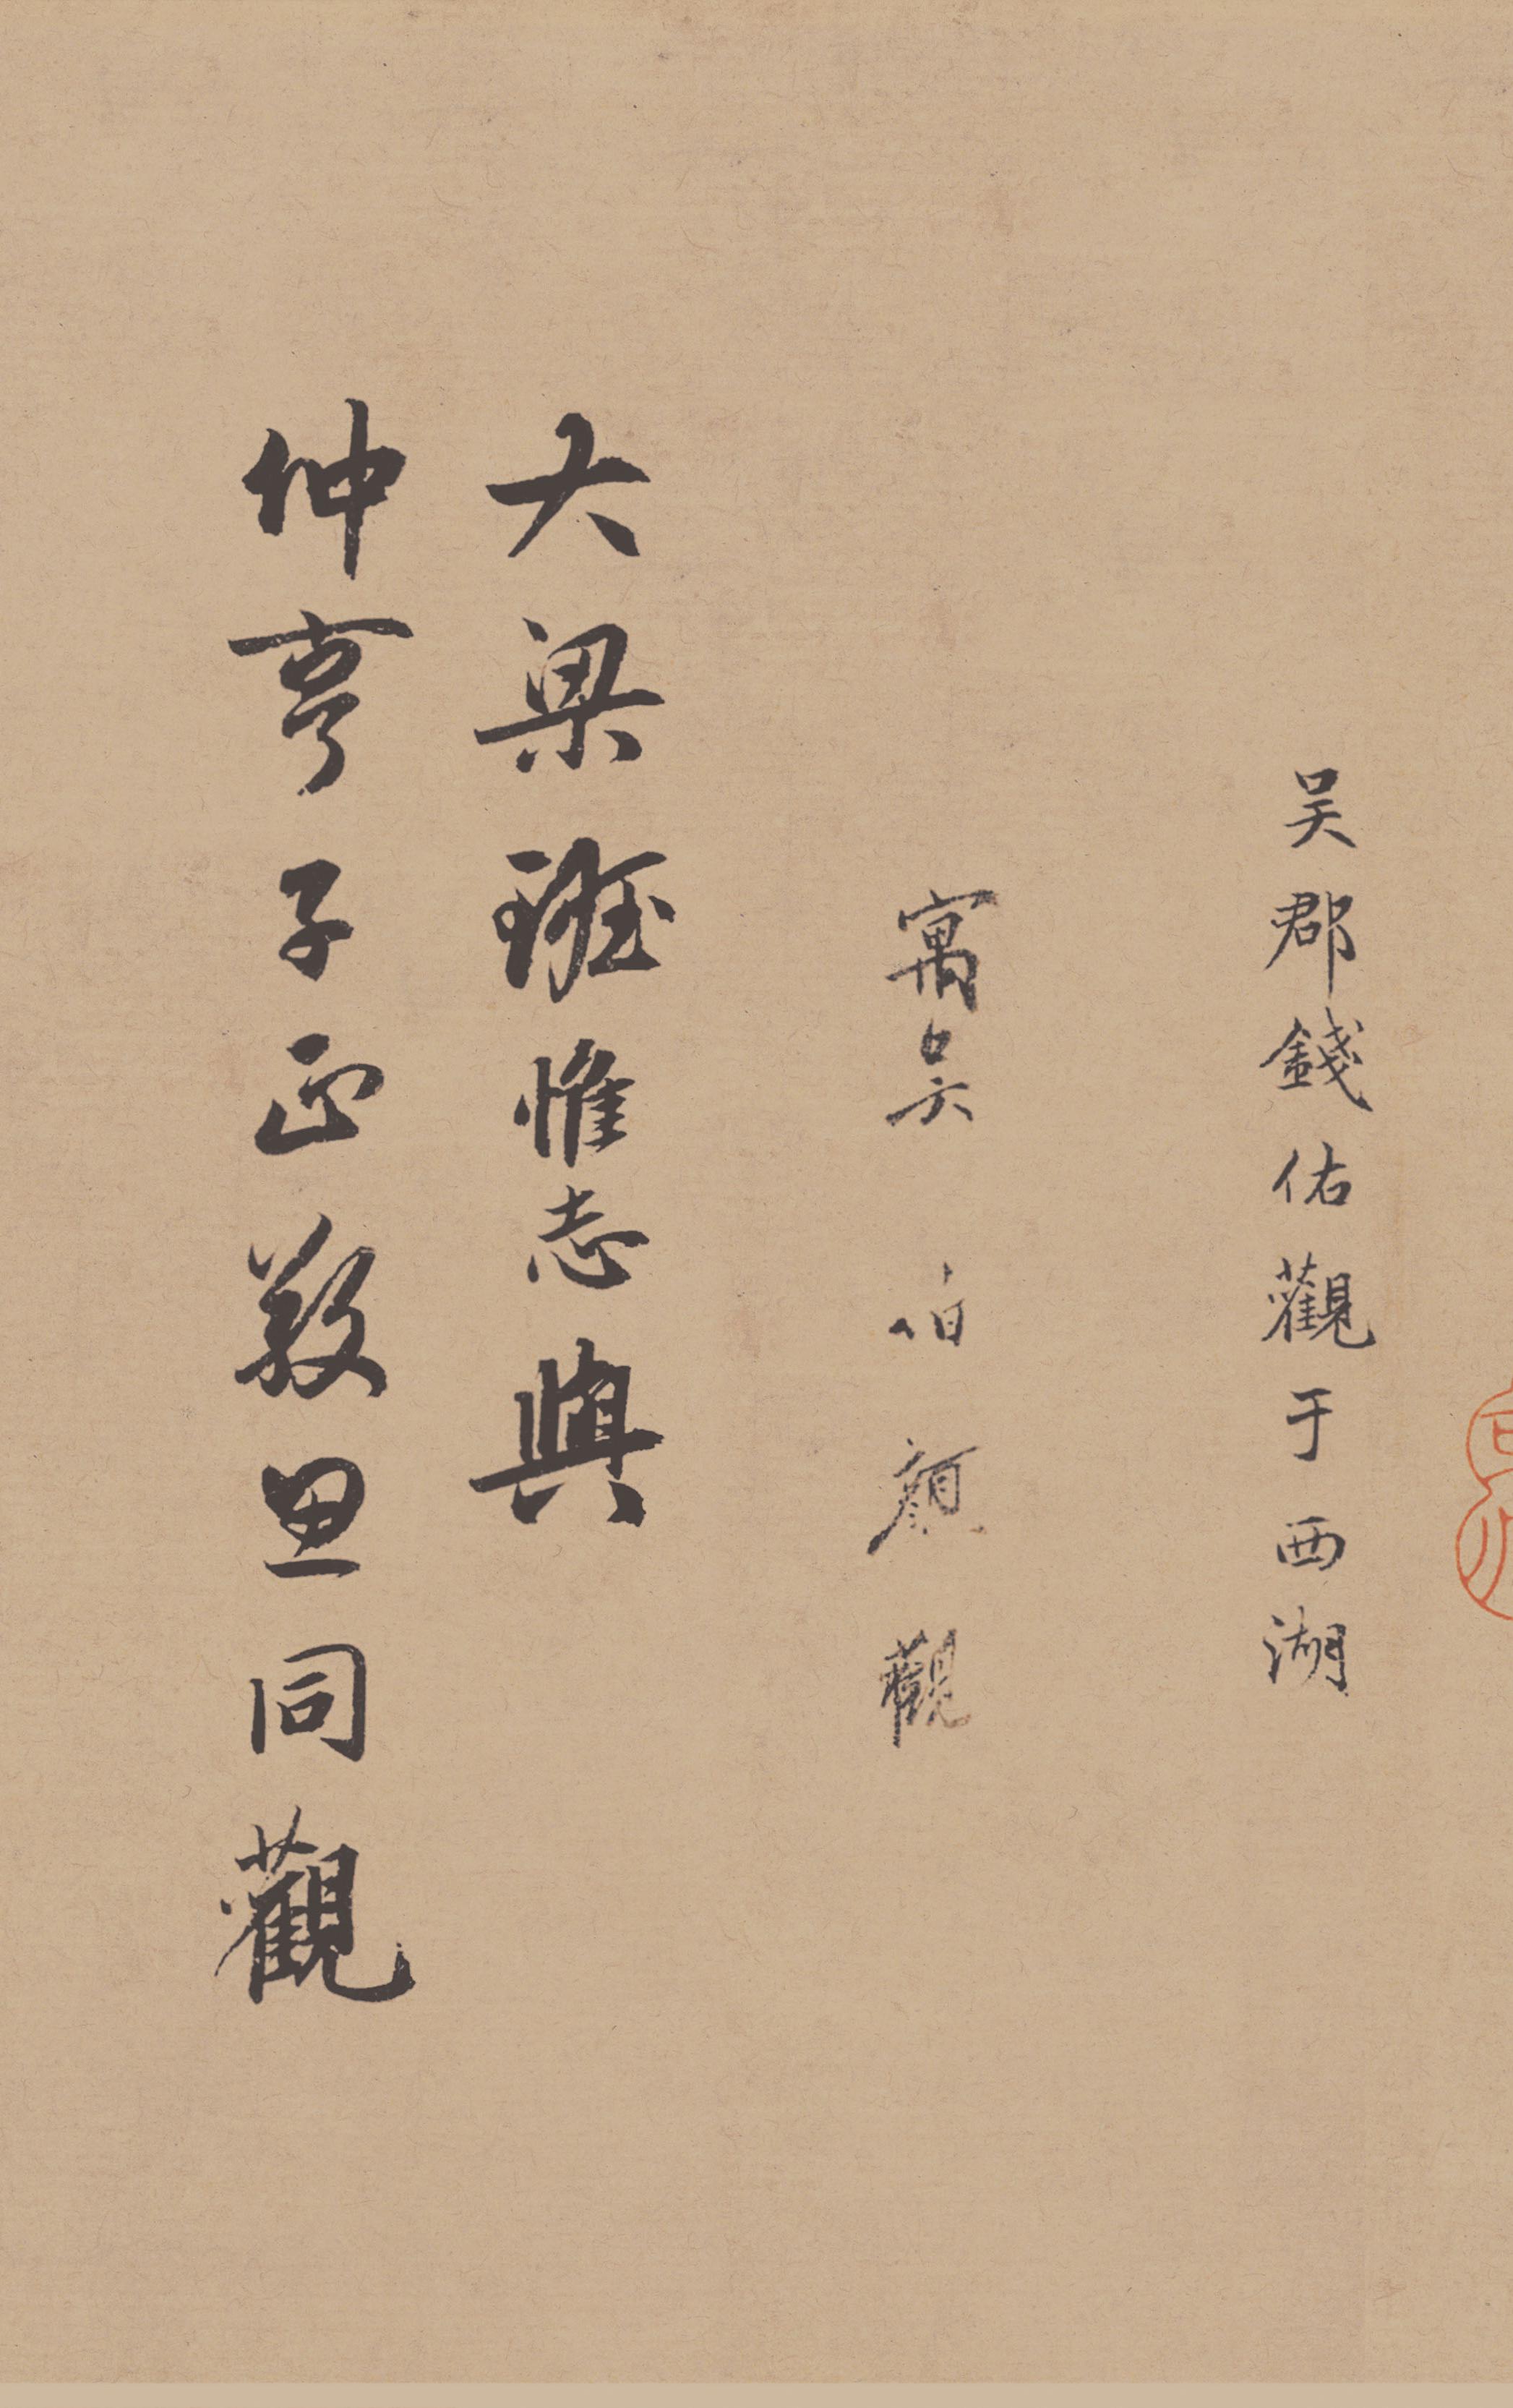 吳郡錢佑觀于西湖
寓吳 伯顏觀
大梁班惟志與
仲亨子正敬思同觀